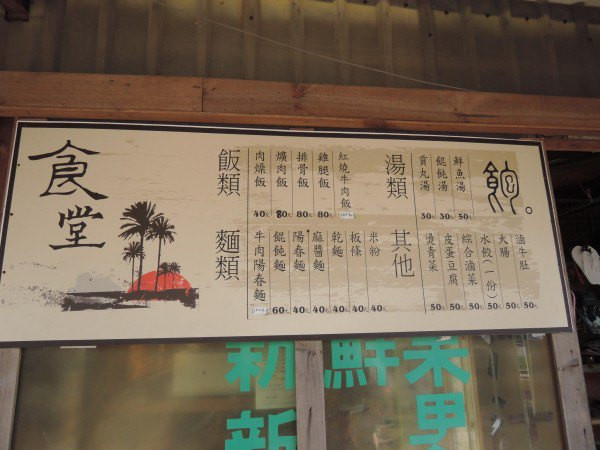 食堂
飯類
肉燥飯 40元
爌肉飯 80元
排骨飯 80元
雞腿飯 80元
紅燒牛肉飯
麵類
牛肉陽春麵
餛飩麵 60元
陽春麵 40元
麻醬麵 40元
乾麵 40元
板條 40元
米粉 40元
湯類
貢丸湯 30元
餛飩湯 30元
鮮魚湯 50元
其他
燙青菜 50元
皮蛋豆腐 50元
綜合滷菜 50元
水餃(一份) 50元
大腸 50元
滷牛肚 50元
飽。
新新
鮮
果